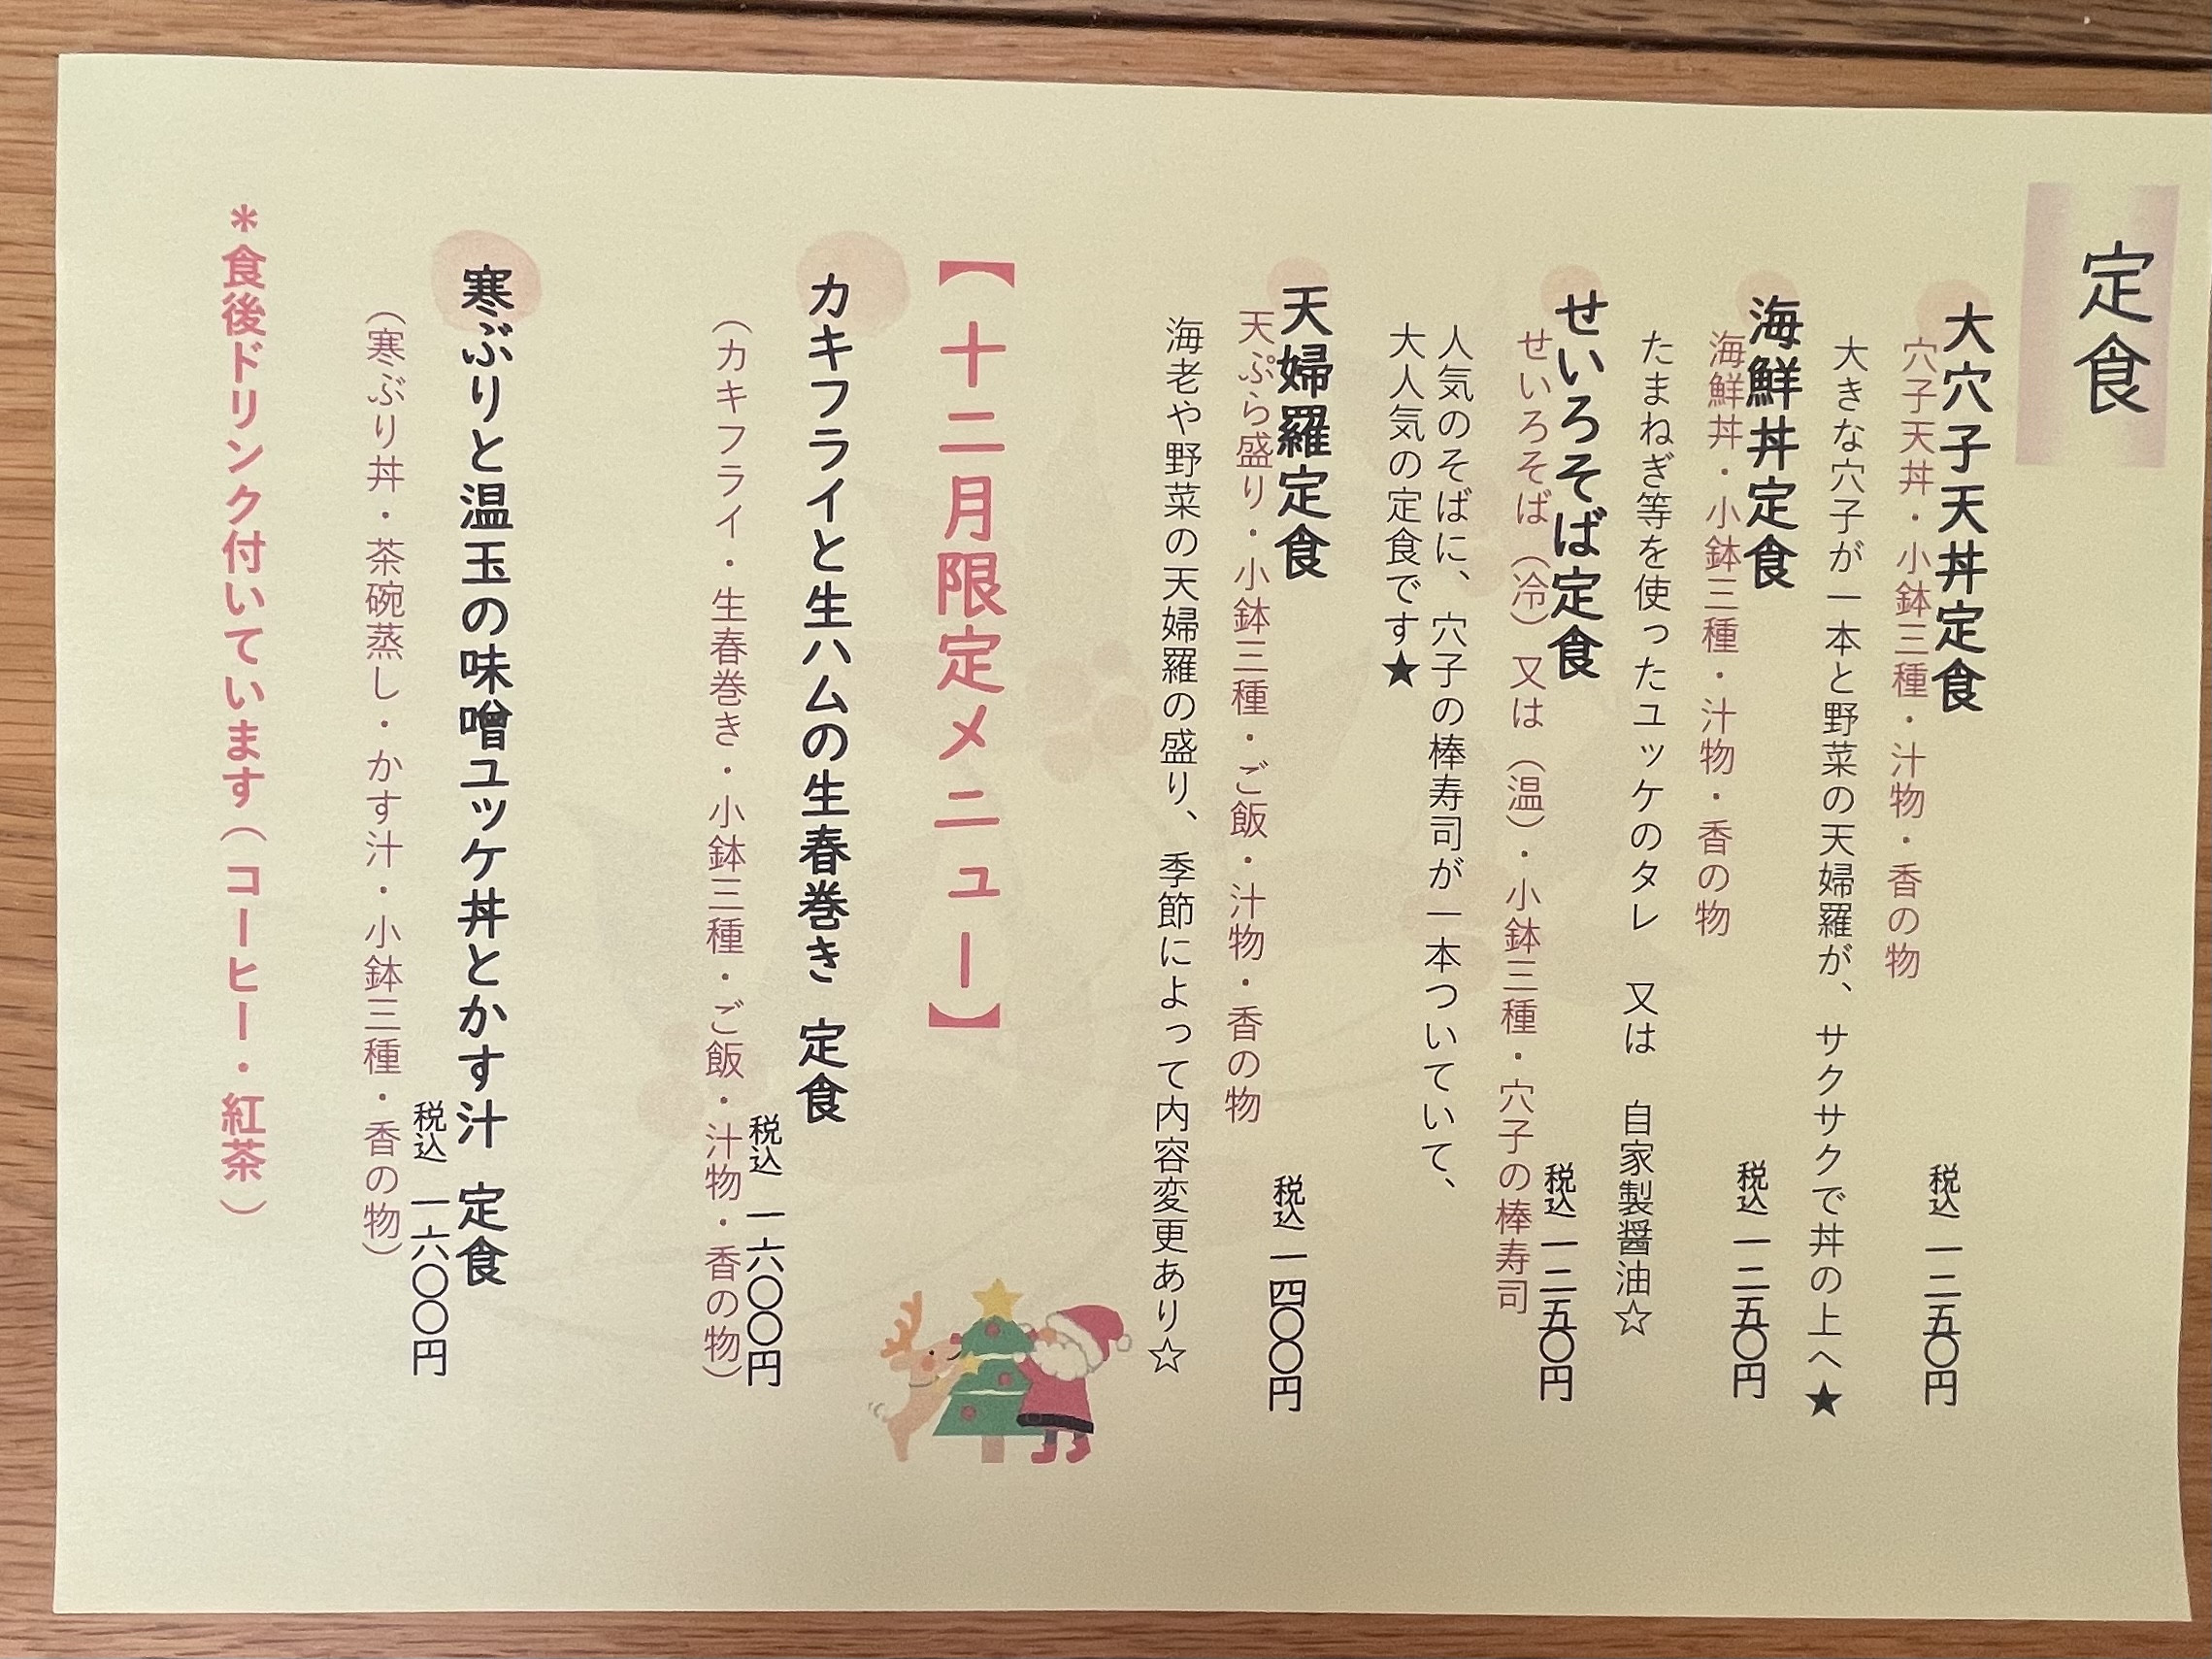 定食
大穴子天丼定食
税込 一二五〇円
穴子天丼・小鉢三種・汁物・香の物
大きな穴子が一本と野菜の天婦羅が、サクサクで丼の上へ★
海鮮丼定食
税込 一二五〇円
海鮮丼・小鉢三種・汁物・香の物
たまねぎ等を使ったユッケのタレ 又は 自家製醤油☆
せいろそば定食
税込 一二五〇円
せいろそば（冷）又は（温）・小鉢三種・穴子の棒寿司
人気のそばに、穴子の棒寿司が一本ついていて、
大人気の定食です★
天婦羅定食
税込 一四〇〇円
天ぷら盛り・小鉢三種・ご飯・汁物・香の物
海老や野菜の天婦羅の盛り、季節によって内容変更あり☆
【十二月限定メニュー】
カキフライと生ハムの生春巻き 定食
税込 一六〇〇円
（カキフライ・生春巻き・小鉢三種・ご飯・汁物・香の物）
寒ぶりと温玉の味噌ユッケ丼とかす汁 定食
税込 一六〇〇円
（寒ぶり丼・茶碗蒸し・かす汁・小鉢三種・香の物）
＊食後ドリンク付いています（コーヒー・紅茶）